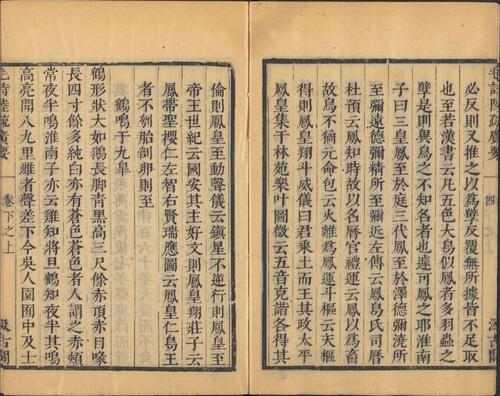 毛詩陸疏廣要
四
汲古閣
必反則又推之以爲孽反覆無所據皆不足取
也至若漢書云凡五色大鳥似鳳者多羽蟲之
孽是則與鳥之不知名者也遽可鳳之耶淮南
子曰三皇鳳至於庭三代鳳至於澤德彌澆所
至彌遠德彌精所至彌近左傳云鳳鳥氏司曆
杜預云鳳知時故以名曆官禮運云鳳以爲畜
故鳥不獝元命包云火離爲鳳運斗樞云天樞
得則鳳皇翔斗威儀曰君乘土而王其政太平
鳳皇集于林苑樂叶圖徵云五音克諧各得其
倫則鳳皇至動聲儀云鎮星不逆行則鳳皇至
帝王世紀云國安其主好文則鳳皇翔莊子云
鳳帶聖櫻仁左智右賢瑞應圖云鳳皇仁鳥王
者不刳胎剖卵則至
鶴鳴于九皐
鶴形狀大如鵝長脚青黑高三尺餘赤頂赤目喙
長四寸餘多純白亦有蒼色蒼色者人謂之赤頰
常夜半鳴淮南子亦云雞知將旦鶴知夜半其鳴
高亮聞八九里雌者聲差下今吳人園囿中及士
毛詩陸疏廣要
卷下之上
汲古閣